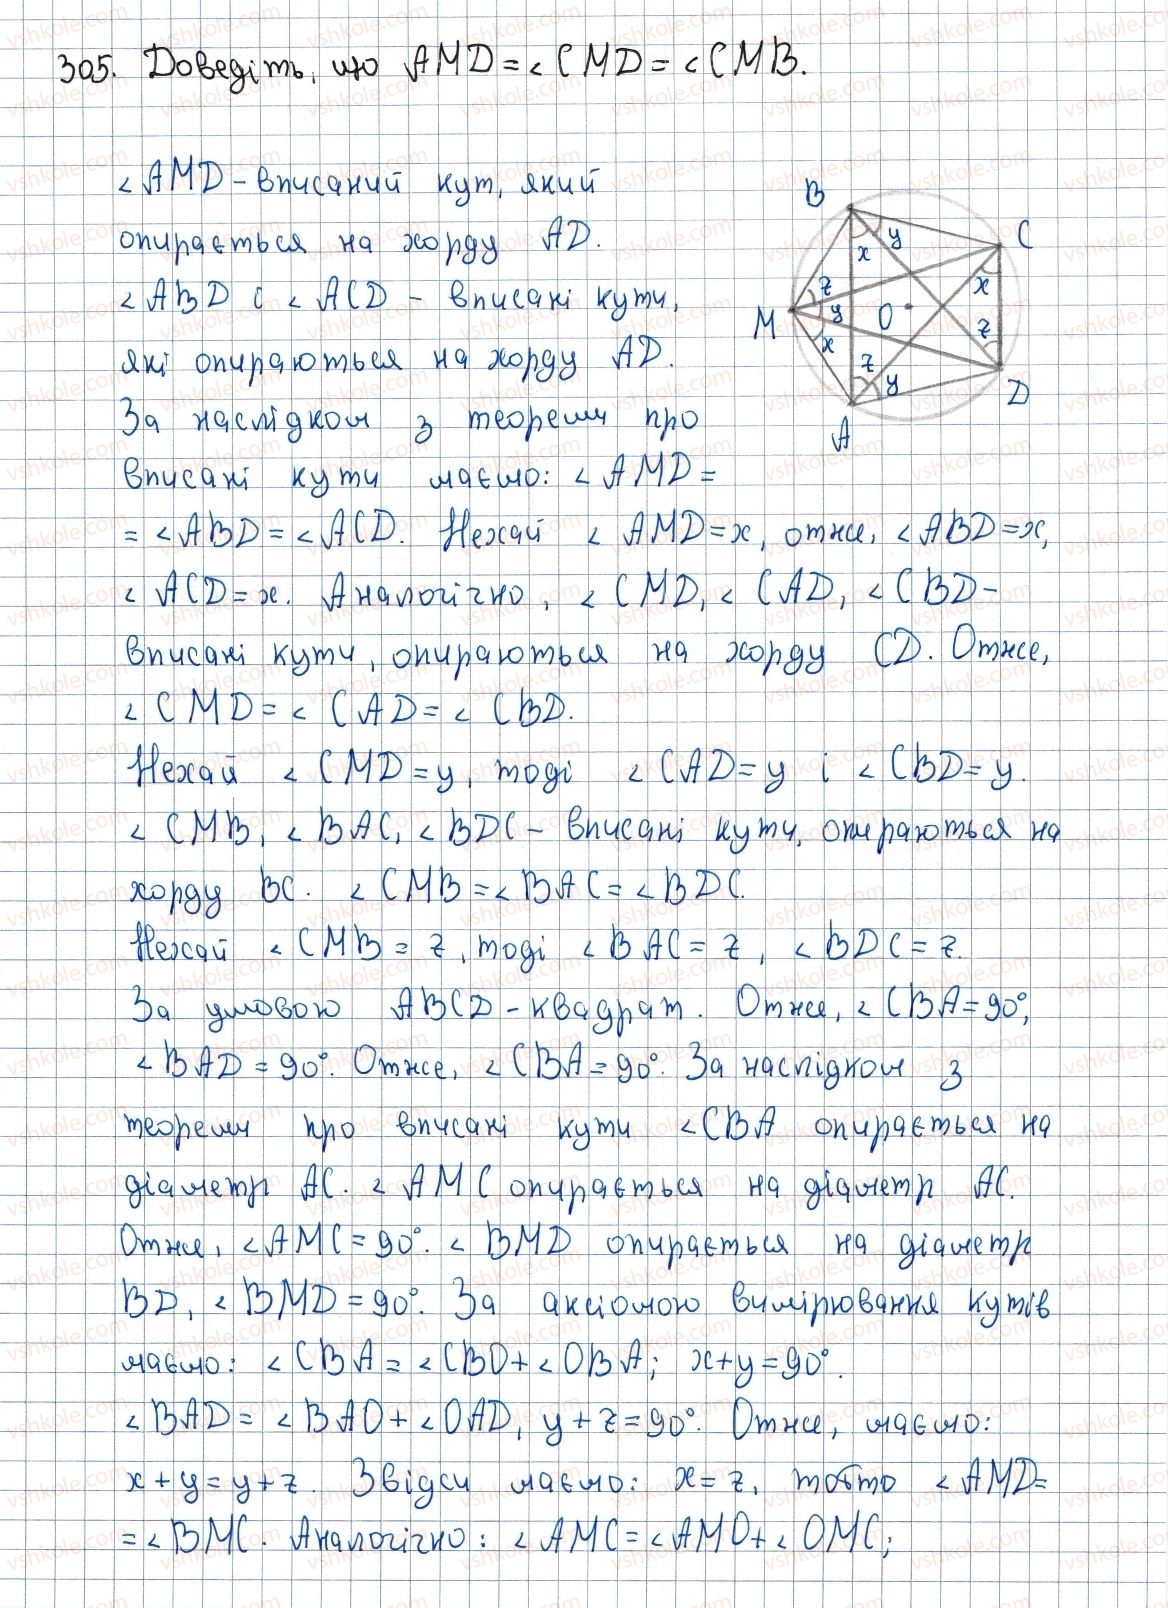 305. Доведіть, що AMD = ∠CMD = ∠CMB.
∠AMD – вписаний кут, який
опирається на хорду AD.
∠ABD і ∠ACD – вписані кути,
які опираються на хорду AD.
За наслідком з теореми про
вписані кути маємо: ∠AMD =
= ∠ABD = ∠ACD. Нехай ∠AMD = x, отже, ∠ABD = x,
∠ACD = x. Аналогічно, ∠CMD, ∠CAD, ∠CBD –
вписані кути, опираються на хорду CD. Отже,
∠CMD = ∠CAD = ∠CBD.
Нехай ∠CMD = y, тоді ∠CAD = y і ∠CBD = y.
∠CMB, ∠BAC, ∠BDC – вписані кути, опираються на
хорду BC. ∠CMB = ∠BAC = ∠BDC.
Нехай ∠CMB = z, тоді ∠BAC = z, ∠BDC = z.
За умовою ABCD – квадрат. Отже, ∠CBA = 90°,
∠BAD = 90°. Отже, ∠CBA = 90°. За наслідком з
теореми про вписані кути ∠CBA опирається на
діаметр AC. ∠AMC опирається на діаметр AC.
Отже, ∠AMC = 90°. ∠BMD опирається на діаметр
BD, ∠BMD = 90°. За аксіомою вимірювання кутів
маємо: ∠CBA = ∠CBO + ∠OBA; x + y = 90°.
∠BAD = ∠BAO + ∠OAD, y + z = 90°. Отже, маємо:
x + y = y + z. Звідси маємо: x = z, тобто ∠AMD =
= ∠BMC. Аналогічно: ∠AMC = ∠AMO + ∠OMC;
B
C
y
x
z
x
M
y
O
z
x
z
y
D
A